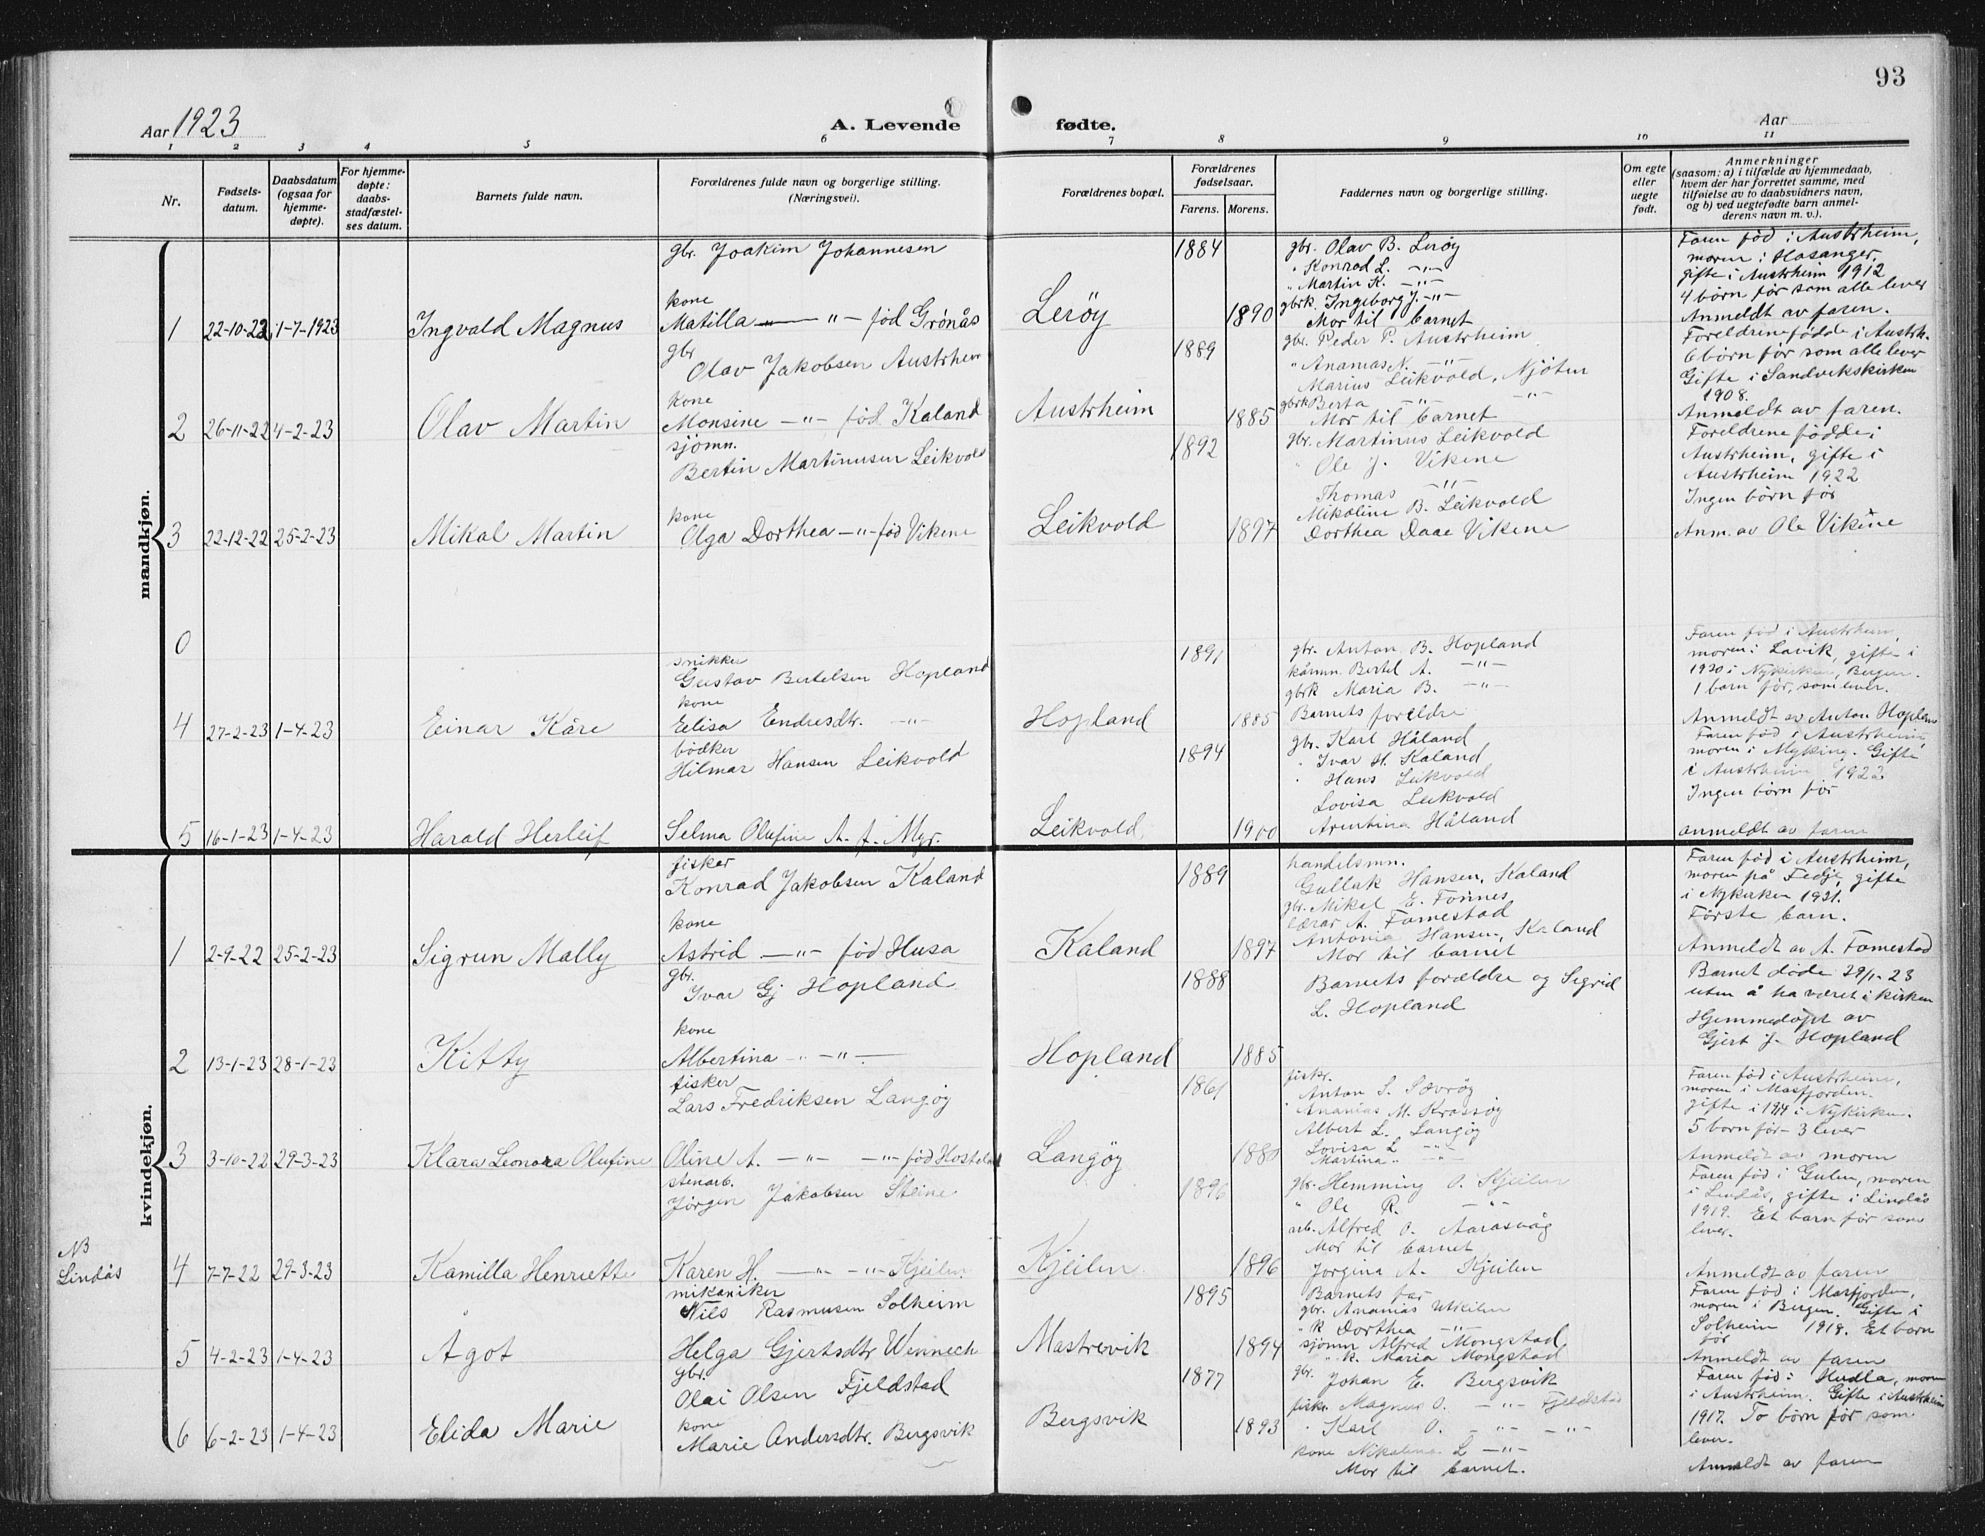 93
Aar 1923
A. Levende fødte.
Aar
1 2 3 4 5 6 7 8 9 10 11
Nr.
Fødsels-
datum.
Daabsdatum
(ogsaa for
hjemme-
døpte).
For hjemme-
døpte:
daabs-
stadfæstel-
ses datum.
Barnets fulde navn.
Forældrenes fulde navn og borgerlige stilling.
(Næringsvei).
Forældrenes bopæl.
Forældrenes
fødselsaar.
Farens. Morens.
Faddernes navn og borgerlige stilling.
Om egte
eller
uegte
født.
Anmerkninger
(saasom: a) i tilfælde av hjemmedaab,
hvem der har forrettet samme, med
tilføielse av to daabsvidners navn,
og b) ved uegtefødte barn anmel-
derens navn m. v.).
mandkjøn.
1 22-10-22 1-7-1923 Ingvald Magnus
gbr. Joakim Johannesen
kone
Matilla —— " — fød Grönås
Leröy
1884
1890
gbr. Olav B. Leröy
" Konrad L. -"-
" Martin K. -"-
gbrk. Ingeborg J. -"-
Mor til barnet
Faren fød i Austrheim,
moren i Hosanger,
gifte i Austrheim 1912
4 börn för som alle lever
Anmeldt av faren.
2 26-11-22 4-2-23 Olav Martin
gbr
Olav Jakobsen Austrheim
kone
Monsine -"- fød Kaland
Austrheim
1889
1885
gbr. Peder P. Austrheim
" Ananias N. -"-
Marius Leikvold, Njöten
gbrk Berta -"- -"-
Mor til barnet
Foreldrene födde i Austrh.
6 börn før som alle lever
Gifte i Sandvikskirken
1908.
Anmeldt av faren.
3 22-12-22 25-2-23 Mikal Martin
sjömn.
Bertin Martinusen Leikvold
kone
Olga Dorthea -"- fød Vikene
Leikvold
1892
1897
gbr. Martinus Leikvold
" Ole J. Vikene
Thomas -"-
Mikoline B. Leikvold
Dorthea Daae Vikene
Foreldrene födde i
Austrheim, gifte i
Austrheim 1922
Ingen börn för
Anm. av Ole Vikene
0
4 27-2-23 1-4-23 Einar Kåre
snikker
Gustav Bertelsen Hopland
kone
Elisa Endresdtr. -"-
Hopland
1891
1885
gbr. Anton B. Hopland
kårmn. Bertel A. -"-
gbrk Maria B. -"-
Barnets foreldre
Faren fød i Austrheim,
moren i Lavik, gifte i
1920 i Nykirken, Bergen.
1 barn för, som lever.
Anmeldt av Anton Hopland
5 16-1-23 1-4-23 Harald Herleif
bödker
Hilmar Hansen Leikvold
Selma Olufine A. f. Myr.
Leikvold
1894
1900
gbr. Karl Håland
" Ivar H. Kaland
" Hans Leikvold
Lovisa Leikvold
Arentina Håland
Faren fød i Austrheim,
moren i Myking. Gifte
i Austrheim 1922
Ingen börn för
anmeldt av faren
kvindekjøn.
1 2-9-22 25-2-23 Sigrun Mally
fisker
Konrad Jakobsen Kaland
kone
Astrid —"- fød Husa
Kaland
1889
1897
handelsmn.
Gullak Hansen, Kaland
gbr. Mikel E. Fonnes
lærar A. Fomestad
Antonia Hansen, Kaland
Mor til barnet
Faren fød i Austrheim,
moren på Fedje, gifte
i Nykirken 1921.
Første barn.
Anmeldt av A. Fomestad
2 13-1-23 28-1-23 Kitty
gbr.
Ivar Gj Hopland
kone
Albertina - -"-
Hopland
1888
1885
Barnets forældre og Sigrid
L. Hopland
Barnet døde 29/1-23
uten å ha været i kirken
Hjemmedöpt av
Gjert J. Hopland
3 3-10-22 29-3-23 Klara Leonora Olufine
fisker
Lars Fredriksen Langöy
Oline A. -"- -"- fød Hosteland
Langöy
1861
fiskr.
Anton S. Sævröy
" Ananias M. Krossöy
Albert L. Langöy
Lovisa L -"-
Martina " -"-
Faren fød i Austrheim,
moren i Masfjorden.
gifte i 1914 i Nykirken.
5 born för - 3 lever
Anmeldt av moren
NB
Lindås
4 7-7-22 29-3-23 Kamilla Henriette
stenarb.
Jörgen Jakobsen Steine
Karen H. —"- -"- Kjeilen.
Kjeilen
1896
1896
gbr. Hemming O. Kjeilen
" Ole R. -"-
arb. Alfred O. Aarasvåg
Mor til barnet
Jorgina A. Kjeilen
Faren fød i Gulen, moren
i Lindås, gifte i Lindås
1919. Et barn för som
lever.
Anmeldt av faren
5 4-2-23 1-4-23 Agot
mikaniker
Nils Rasmusen Solheim
Helga Gjertsdtr Wennech
Mastrevik
1895
1894
Barnets far
gbr. Ananias Utkilen
" k Dorthea -"-
sjömn Alfred Mongstad
" k. Maria Mongstad
Faren fød i Masfjorden,
moren i Bergen. Gifte i
Solheim 1918. Et barn
för
Anmeldt av faren
6 6-2-23 1-4-23 Elida Marie
gbr.
Olai Olsen Fjeldstad
kone
Marie Andersdtr. Bergsvik
Bergsvik
1877
1893
gbr. Johan E. Bergsvik
fiskr. Magnus O. -"- Fjeldstad
" Karl O. -"- -"-
kone Nikolina L -"-
Mor til barnet.
Faren fød i Hudla, moren
i Austrheim. Gifte i Austrheim
1917. To börn för som
lever.
Anmeldt av faren